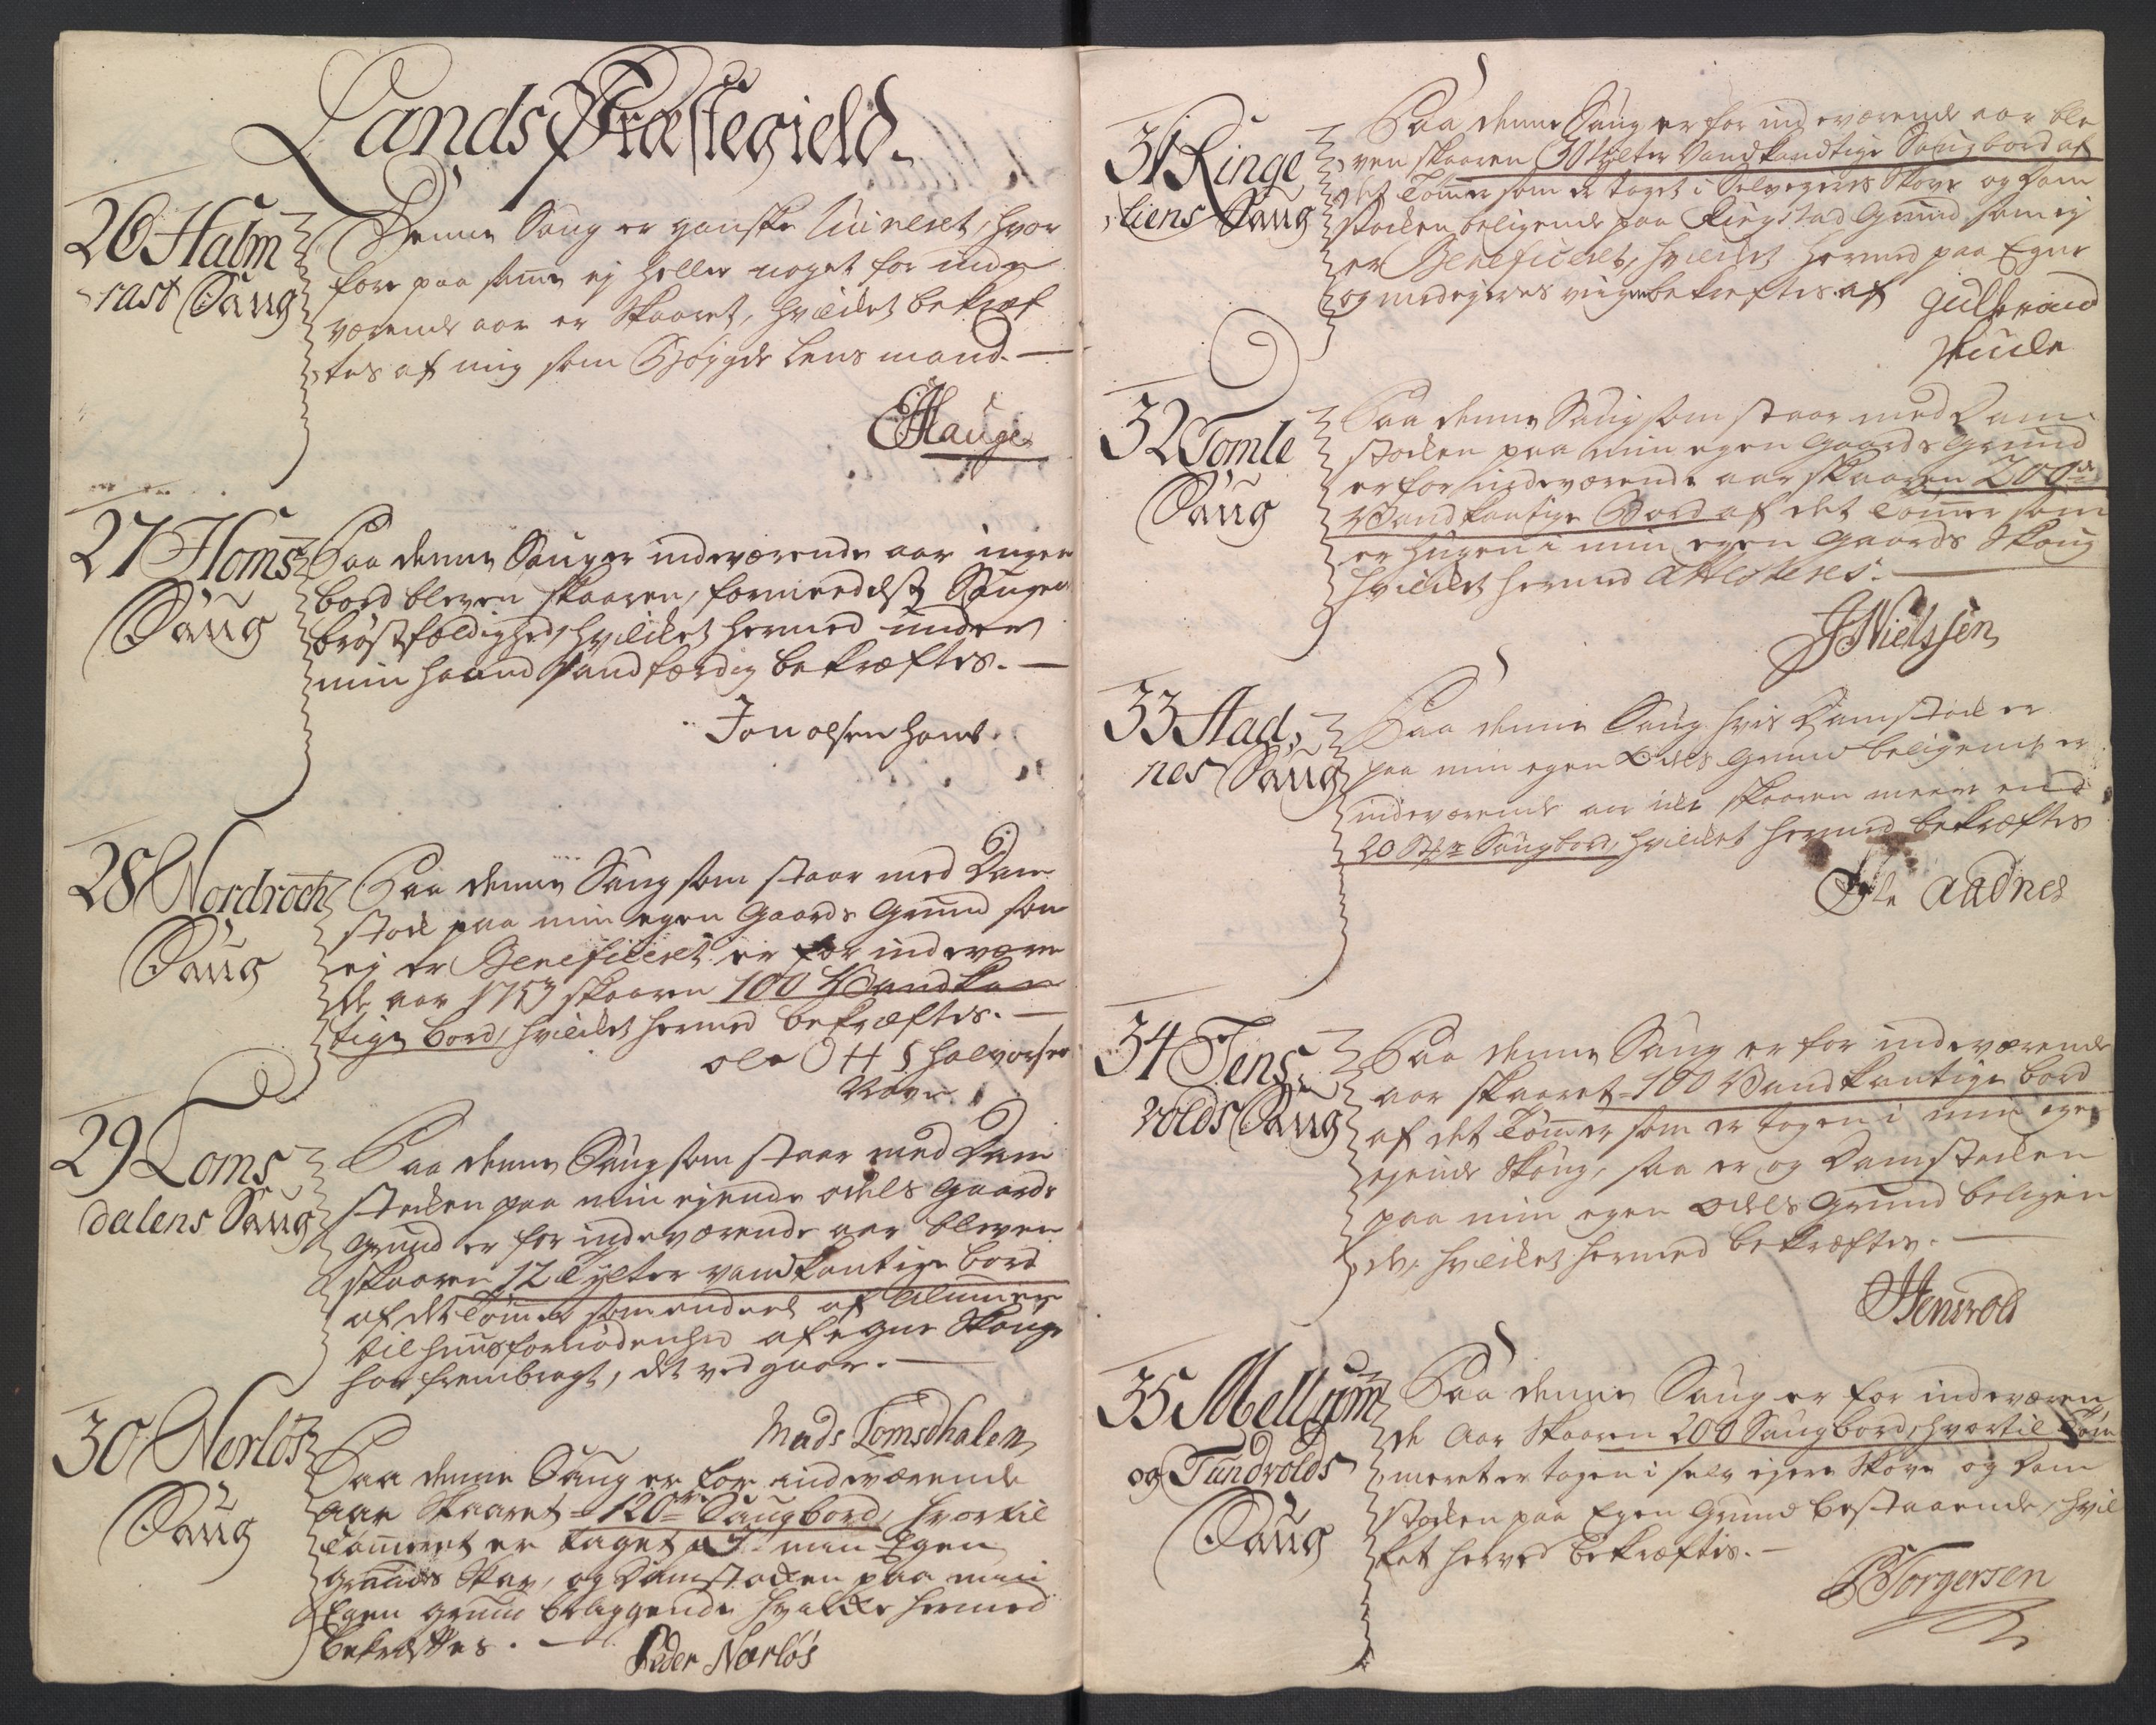 Lands Præstegield.
26 Halm
rast Saug
Denne Saug er ganske Ruineret, hvor
fore paa samme ej heller noget for inde
værende aar er Skaaret, hvilcket bekræf
tes af mig som Bøygde Lensmand. —
EHauge
27 Homs
Saug
Paa denne Saug er indeværende aar ingen
bord bleven skaaren, formeedelst Saugens
brøstfældighed, hvilcket hermed under
min haand sandfærdig bekræftes. —
Jon olsen homb
28 Nordroch
Saug
Paa denne Saug som staar med Dam
stock paa min egen Gaards Grund som
ej er Beneficeret er for indværen
de aar 1753 skaaren 100 Vandkan
tige bord, hvilcket hermed bekræftes. —
ole O H S halvorsen
29 Loms
dalens Saug
Paa denne Saug som staar med Dam
stocken paa min ejende odels Gaards
Grund er for indeværende aar bleven
skaaren 12 Tylter vandkantige bord
af det Tømmer som endeel af Almue
til huus fornødenhed af egne Skouge
har frembragt, det vedgaar. —
Mads Lomsdhalen
30 Nerløs
Saug
Paa denne Saug er for indeværende
aar Skaaret 120 Saugbord, hvortil
Tømmeret er taget af min Egen
Grunds Skov, og Damstocken paa min
Egen grund beliggende hvilcke hermed
bekræfttes. —
Peder Nerløs
31 Ringe
liens Saug
Paa denne Saug er for indeværende aar ble
ven skaaren 30 Tylter Vandkandtige Saugbord af
det Tømmer som er taget i Selvejeres Skove og Dam
stocken beligende paa Ringstad Grund som ej
er Beneficeret, hvilcket hermed paa Egne
og medejeres veigne bekreftes af
Gulbrand
32 Tomle
Saug
Paa denne Saug som staar med Dam
stocken paa min egen Gaards Grund
er for indeværende aar skaaren 200
Vandkantige Bord af det Tømmer som
er hugen i min egen Gaards Skoug
hvilcket hermed attesteres. —
JNielssen
33 Aad,
nes Saug
Paa denne Saug hvis Damstock er
paa min egen Odels Grund beligende er
indeværende aar icke skaaren meere end
20 St Saugbord, hvilcket hermed bekræftes
Ole Aadnes
34 Jens
volds Saug
Paa denne Saug er for indeværende
aar skaaret 100 Vandkantige bord
af det Tømmer som er tagen i min egen
ejende Skoug, saa er og Damstocken
paa min egen Odels Grund beligen
de, hvilcket hermed bekræftes. —
Jensvold
35 Mellum
og Tundvolds
Saug
Paa denne Saug er for indeværen
de Aar Skaaren 200 Saugbord, hvortil Tøm
meret er tagen i selv ejere Skove og Dam
stocken paa Egen Grund bestaaende, hvil
ket herved bekræftes. —
Torgersen